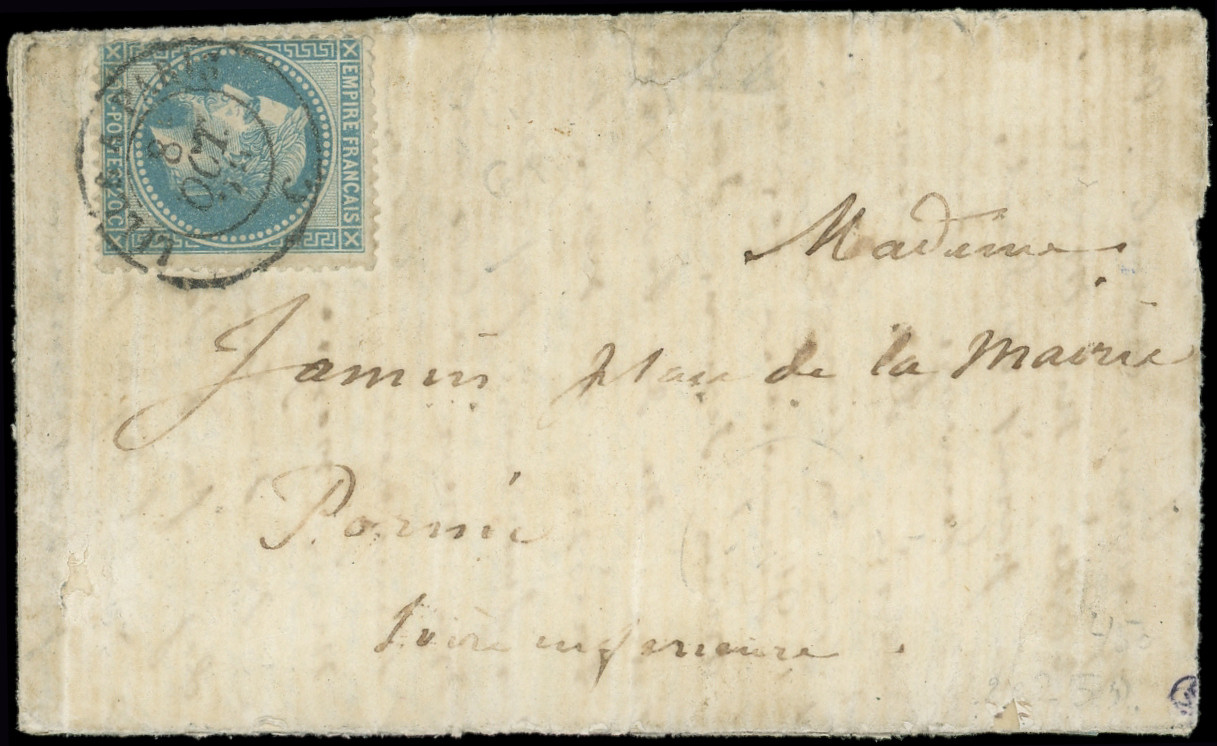 EMPIRE FRANCAIS
POSTES 20C
LILLE A PARIS
8
OCT
C
Madame
Jamin place de la Mairie
Pornic
Loire inferieure